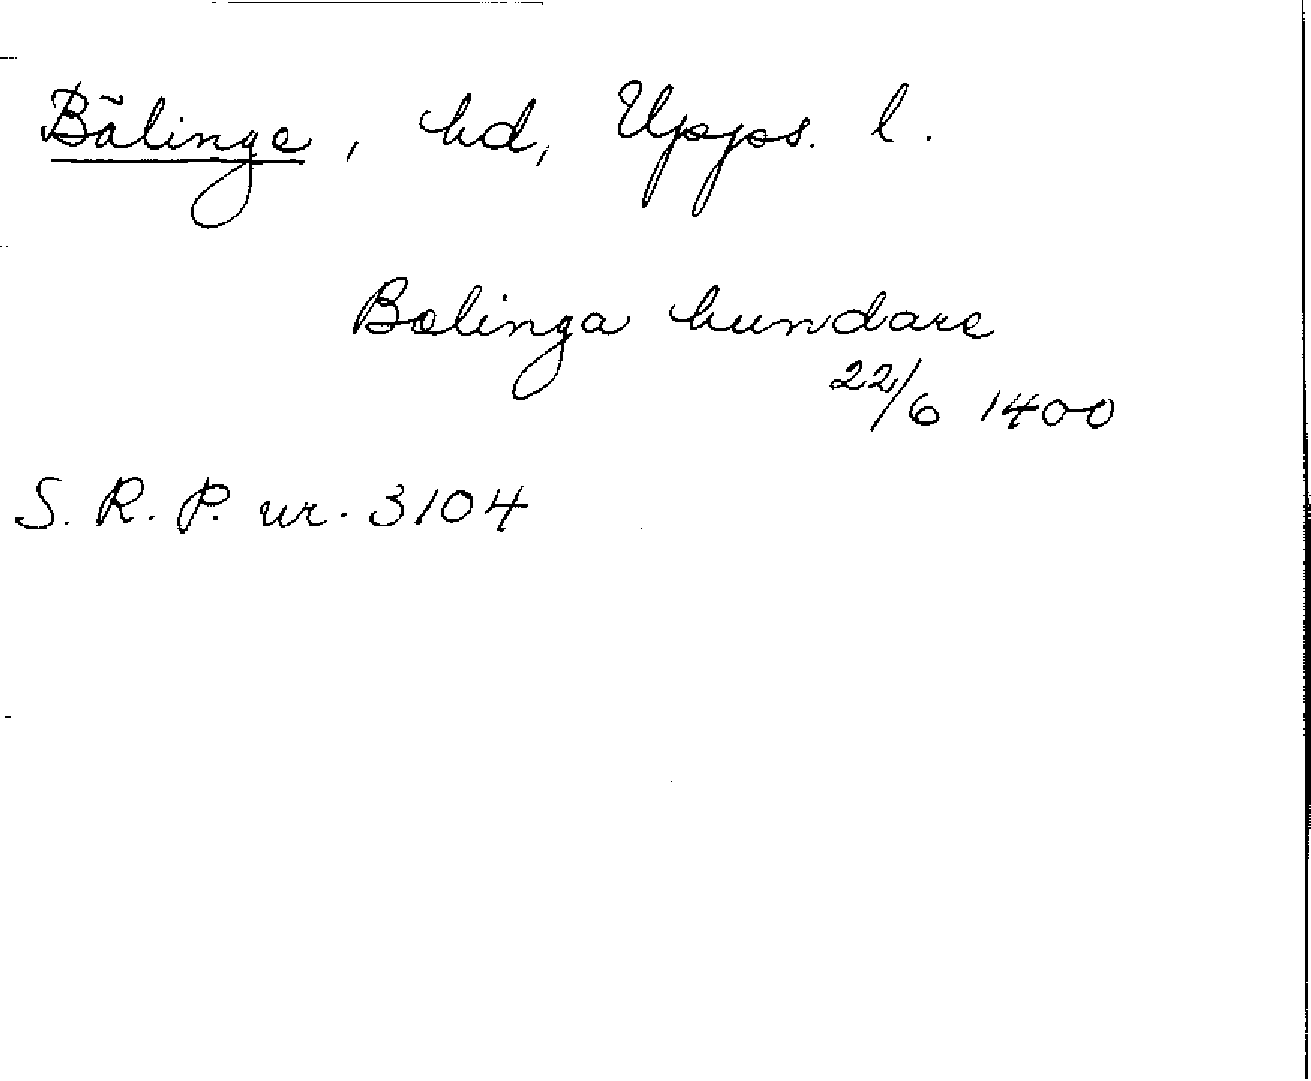 Bälinge, hd, Upps. l.
Bælinga hundare
22/6 1400
S. R. P. nr. 3104